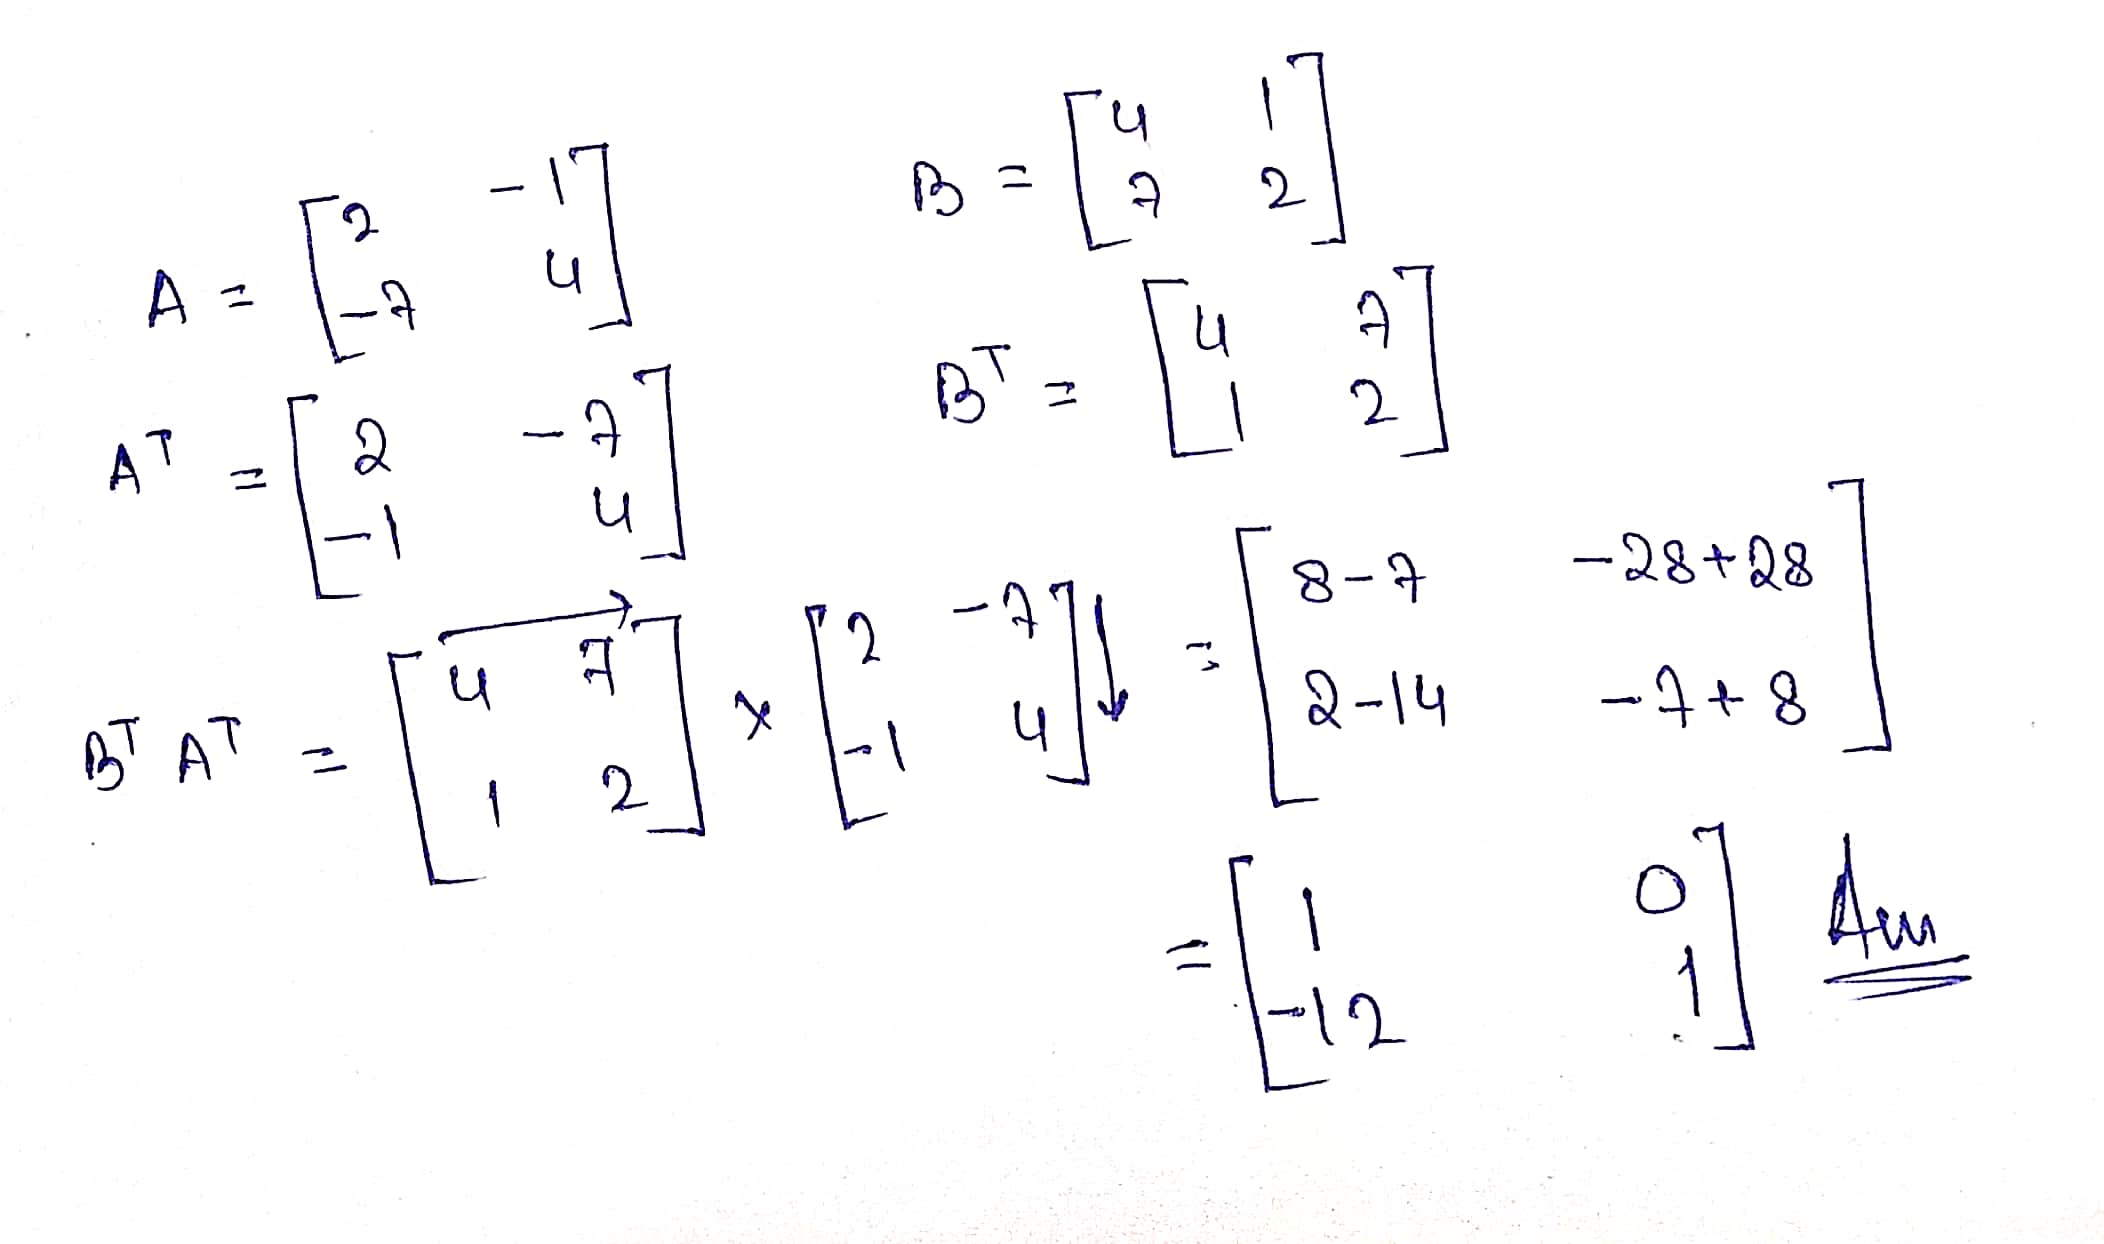 A = [2 -1
-7 4]
B = [4 1
7 2]
Aᵀ = [2 -7
-1 4]
Bᵀ = [4 7
1 2]
Bᵀ Aᵀ = [4 7
1 2] × [2 -7
-1 4] = [8-7 -28+28
2-14 -7+8]
= [1 0
-12 1] Ans